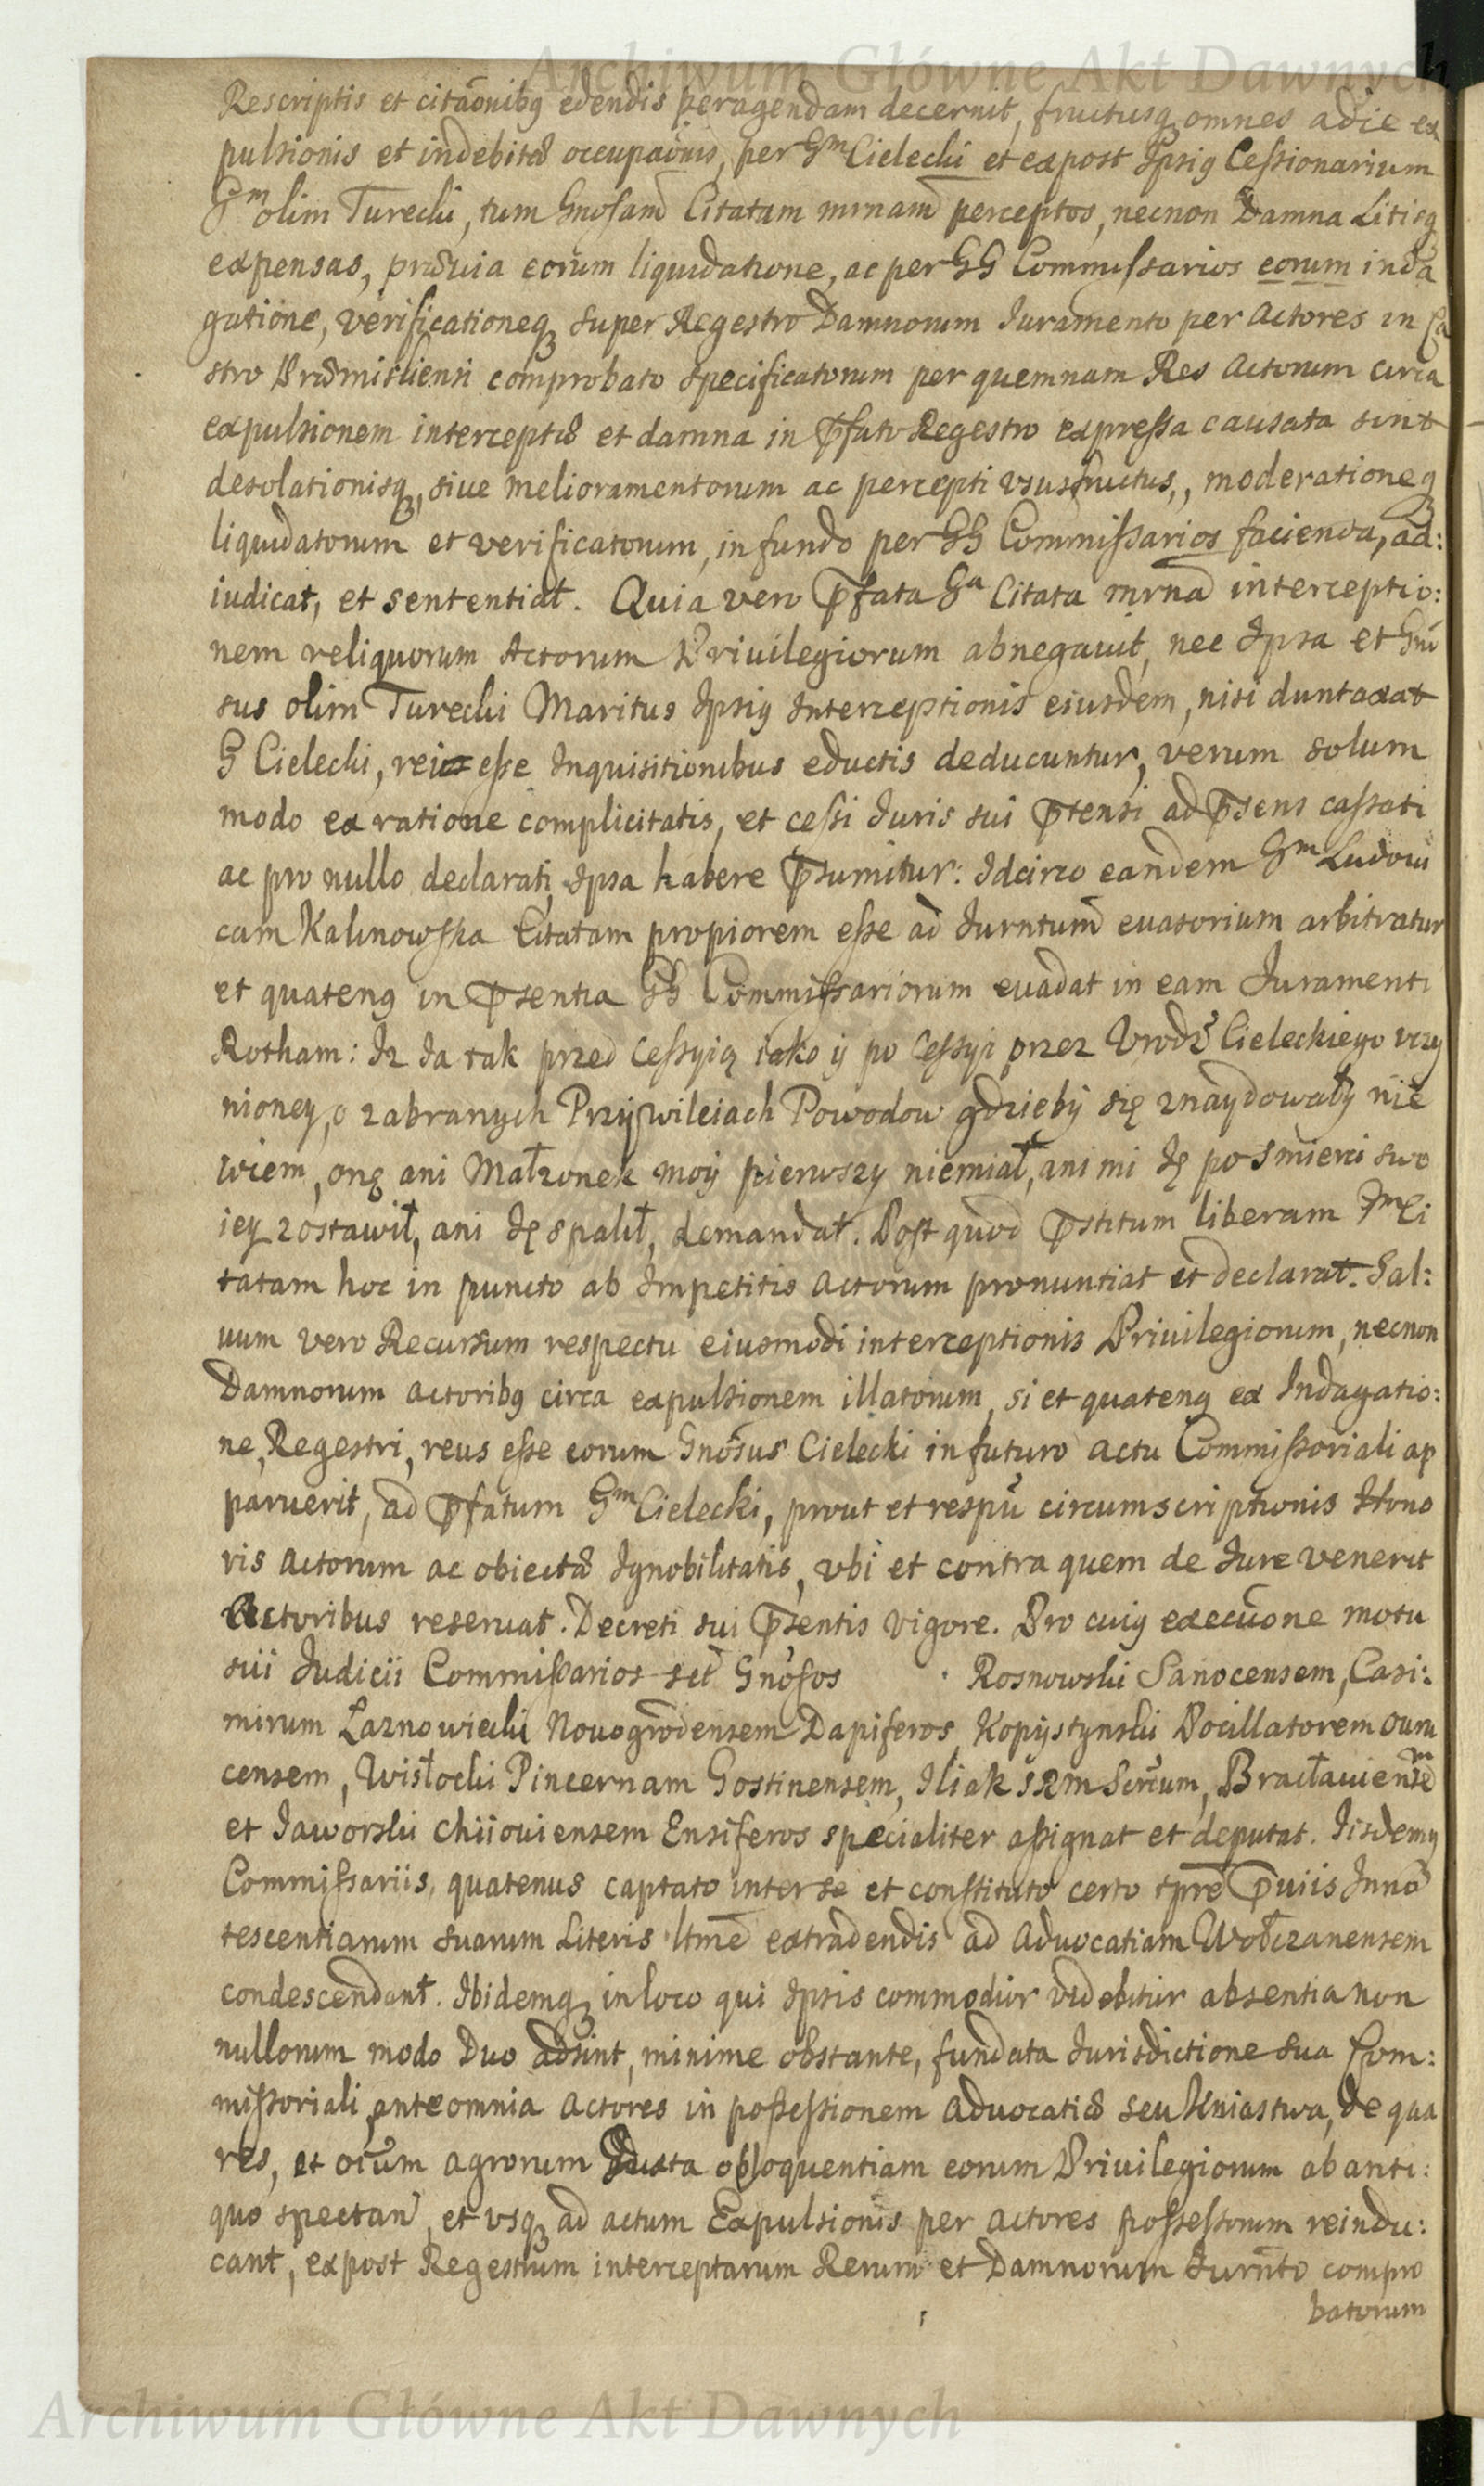 Archiwum Główne Akt Dawnych
Rescriptis et citãonibq edendis peragendam decernit, fructusq omnes adie ex
pulsionis et indebitæ occupaõnis, per Gm Cielecki et expost Ipsiq Cessionarium
Gm olim Turecki, tum Gnosam Citatam mrnam perceptos, necnon Damna Litisq
expensas, prævia eorum liquidatione, ac per GG Commissarios eorum inda
gatione, verificationeq super Regestro Damnorum Iuramento per Actores in Ca
stro Præmisliensi comprobato specificatorum per quemnam Res Actorum circa
expulsionem interceptæ et damna in p̃fato Regestro expressa causata sint
desolationisq, siue melioramentorum ac percepti vsusfructus,, moderationeq
liquidatorum et verificatorum, in fundo per GG Commissarios facienda, ad:
iudicat, et sententiat. Quia vero p̃fata Ga Citata mrna interceptio:
nem reliquorum Actorum Priuilegiorum abnegauit, nec Ipsa et Gno
sus olim Turecki Maritus Ipsiq Interceptionis eiusdem, nisi duntaxat
G Cielecki, rei esse Inquisitionibus eductis deducuntur, verum solum
modo ex ratione complicitatis, et cessi Iuris sui p̃tensi ad p̃sens cassati
ac pro nullo declarati, Ipsa habere p̃sumitur: Idcirco eandem Gm Ludoui
cam Kalinowska Citatam propiorem esse ad Iurntum euasorium arbitratur
et quatenq in p̃sentia GG Commissariorum euadat in eam Iuramenti
Rotham: Iz Ia tak przed Cessyią iako ÿ po Cessyi przez Vrodz Cieleckiego vczy
nioney, o zabranych Przÿwileiach Powodow gdziebÿ się znaydowałÿ nie
wiem, onę ani Małzonek moÿ pierwszy niemiał, ani mi Ię po smierci swo
iey zostawił, ani Ię spalił, demandat. Post quod p̃stitum liberam Gm Ci
tatam hoc in puncto ab Impetitis Actorum pronuntiat et declarat. Sal:
uum vero Recursum respectu eiusmodi interceptionis Priuilegiorum, necnon
Damnorum Actoribq circa expulsionem illatorum, si et quatenq ex Indagatio:
ne, Regestri, reus esse eorum Gnosus Cielecki in futuro actu Commissoriali ap
paruerit, ad p̃fatum Gm Cielecki, prout et respu circumscriptionis Hono
ris Actorum ac obiectæ Ignobilitatis, vbi et contra quem de Iure venerit
Actoribus reseruat. Decreti sui p̃sentis vigore. Pro cuiq execuõne motu
sui Iudicii Commissarios sct Gnosos Rosnowski Sanocensem, Casi:
mirum Łaznowiecki Nouogrodensem Dapiferos, Kopÿstynski Pocillatorem Ouru
censem, Wisłocki Pincernam Gostinensem, Iliak SRM Scrium, Bracłauiensem
et Iaworski Chiiouiensem Ensiferos specialiter assignat et deputat. Iisdemq
Commissariis, quatenus captato inter se et constituto certo tpre p̃uiis Inno
tescentiarum suarum Literis ltme extradendis ad Aduocatiam Wołczanensem
condescendant. Ibidemq in loco qui Ipsis commodior videbitur absentia non
nullorum modo Duo adsint, minime obstante, fundata Iurisdictione sua Com:
missoriali, ante omnia Actores in possessionem Aduocatiæ seu Kniastwa, de qua
res, et oium agrorum Iuxta obloquentiam eorum Priuilegiorum ab anti:
quo spectan, et vsq ad actum Expulsionis per Actores possessorum reindu:
cant, expost Regestrum interceptarum Rerum et Damnorum Iurnto compro
batorum
Archiwum Główne Akt Dawnych